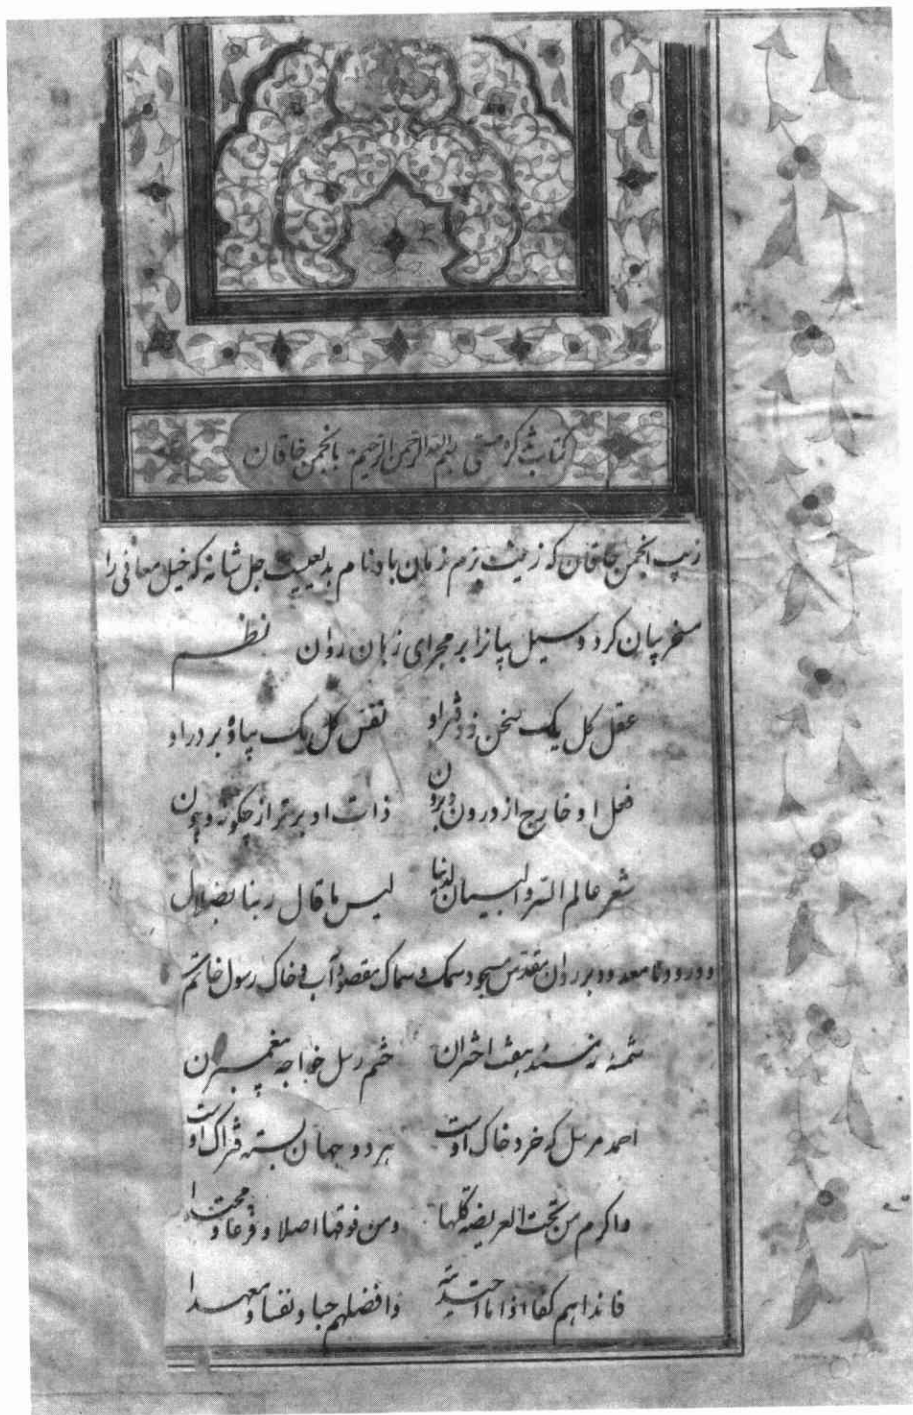 کتاب تذکرهٔ مسمی بسم الله الرحمن الرحیم بانجمن خاقان
زیب انجمن خاقان که زینت بزم زمان باد نام بدیعیست جل شانه که خیل معانی را
مسخر بیان کرد و سیل بیانرا بر مجرای زبان روان نظم
عقل کل یک سخن ز دفتر او نفس کل یک پیاده بر در او
فعل او خارج از درون و برون ذات او برتر از چگونه و چون
شعر عالم السر ولیس ما قال ربنا بضلال
و درود نامعدود بر روان مقدس مسجود سمک و سماک مقصود آب و خاک رسول خاتم
شمسهٔ نه مسند هفت اختران ختم رسل خواجهٔ پیغمبران
احمد مرسل که خرد خاک اوست هر دو جهان بستهٔ فتراک اوست
واکرم من تحت العریضة کلها ومن فوقها اصلا وفرعا ومحتدا
فانداهم کفا اذا ما وافضلهم حبا ونفسا ومعهدا